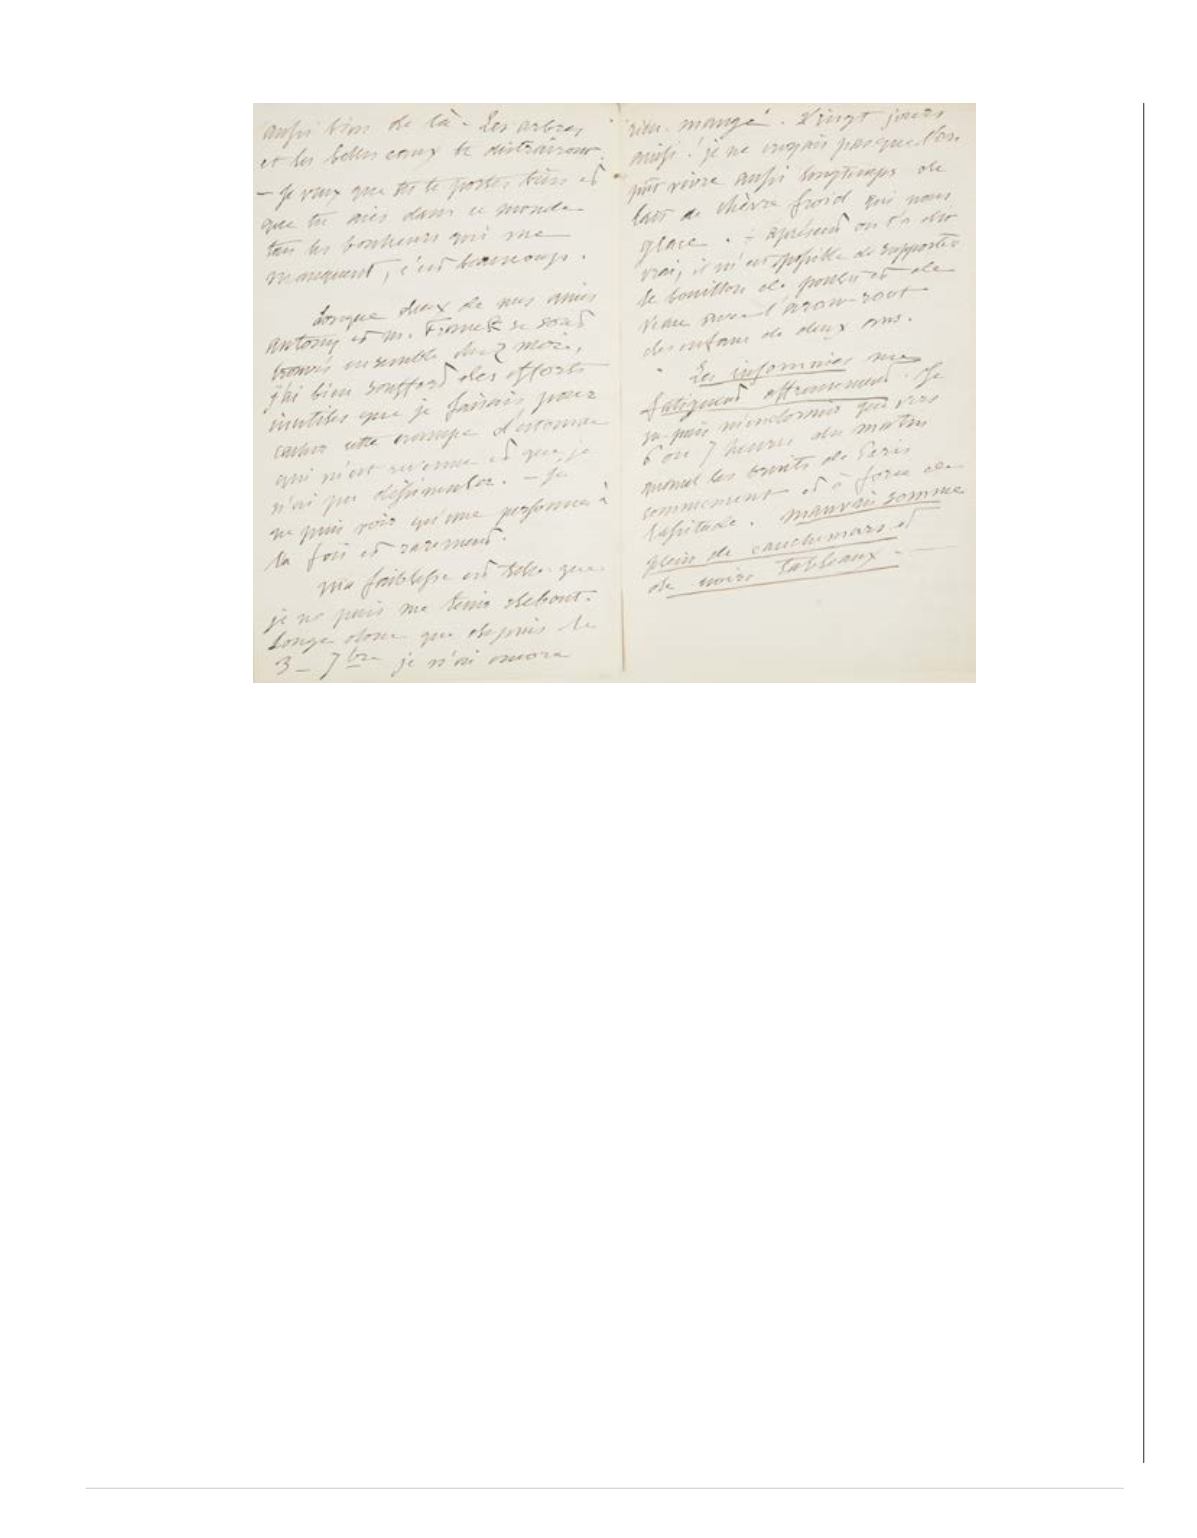 aussi bien de là. Les arbres
et les belles eaux te distrairont.
— Je veux que tu te portes bien et
que tu aies dans ce monde
tous les bonheurs qui me
manquent, c'est beaucoup.
Lorsque deux de nos amis
antony et M. se sont
trouvés ensemble chez moi,
j'ai bien souffert des efforts
inutiles que je faisais pour
cacher cette crampe d'estomac
qui m'est revenue et que je
n'ai pu dissimuler. — Je
ne puis voir qu'une personne à
la fois et rarement.
Ma faiblesse est telle que
je ne puis me tenir debout.
Songe donc que depuis le
3 — 7bre je n'ai encore
rien mangé. Vingt jours
ainsi ! je ne croyais pas que l'on
pût vivre aussi longtemps de
lait de chèvre froid qui nous
glace. à présent on t'a dit
vrai, il m'est possible de supporter
le bouillon de poulet et de
veau avec l'arow-root
des enfans de deux ans.
Les insomnies me
fatiguent affreusement. Je
ne puis m'endormir que vers
6 ou 7 heures du matin
quand les bruits de Paris
commencent et à force de
lassitude. mauvais somme
plein de cauchemars et
de noirs tableaux. —